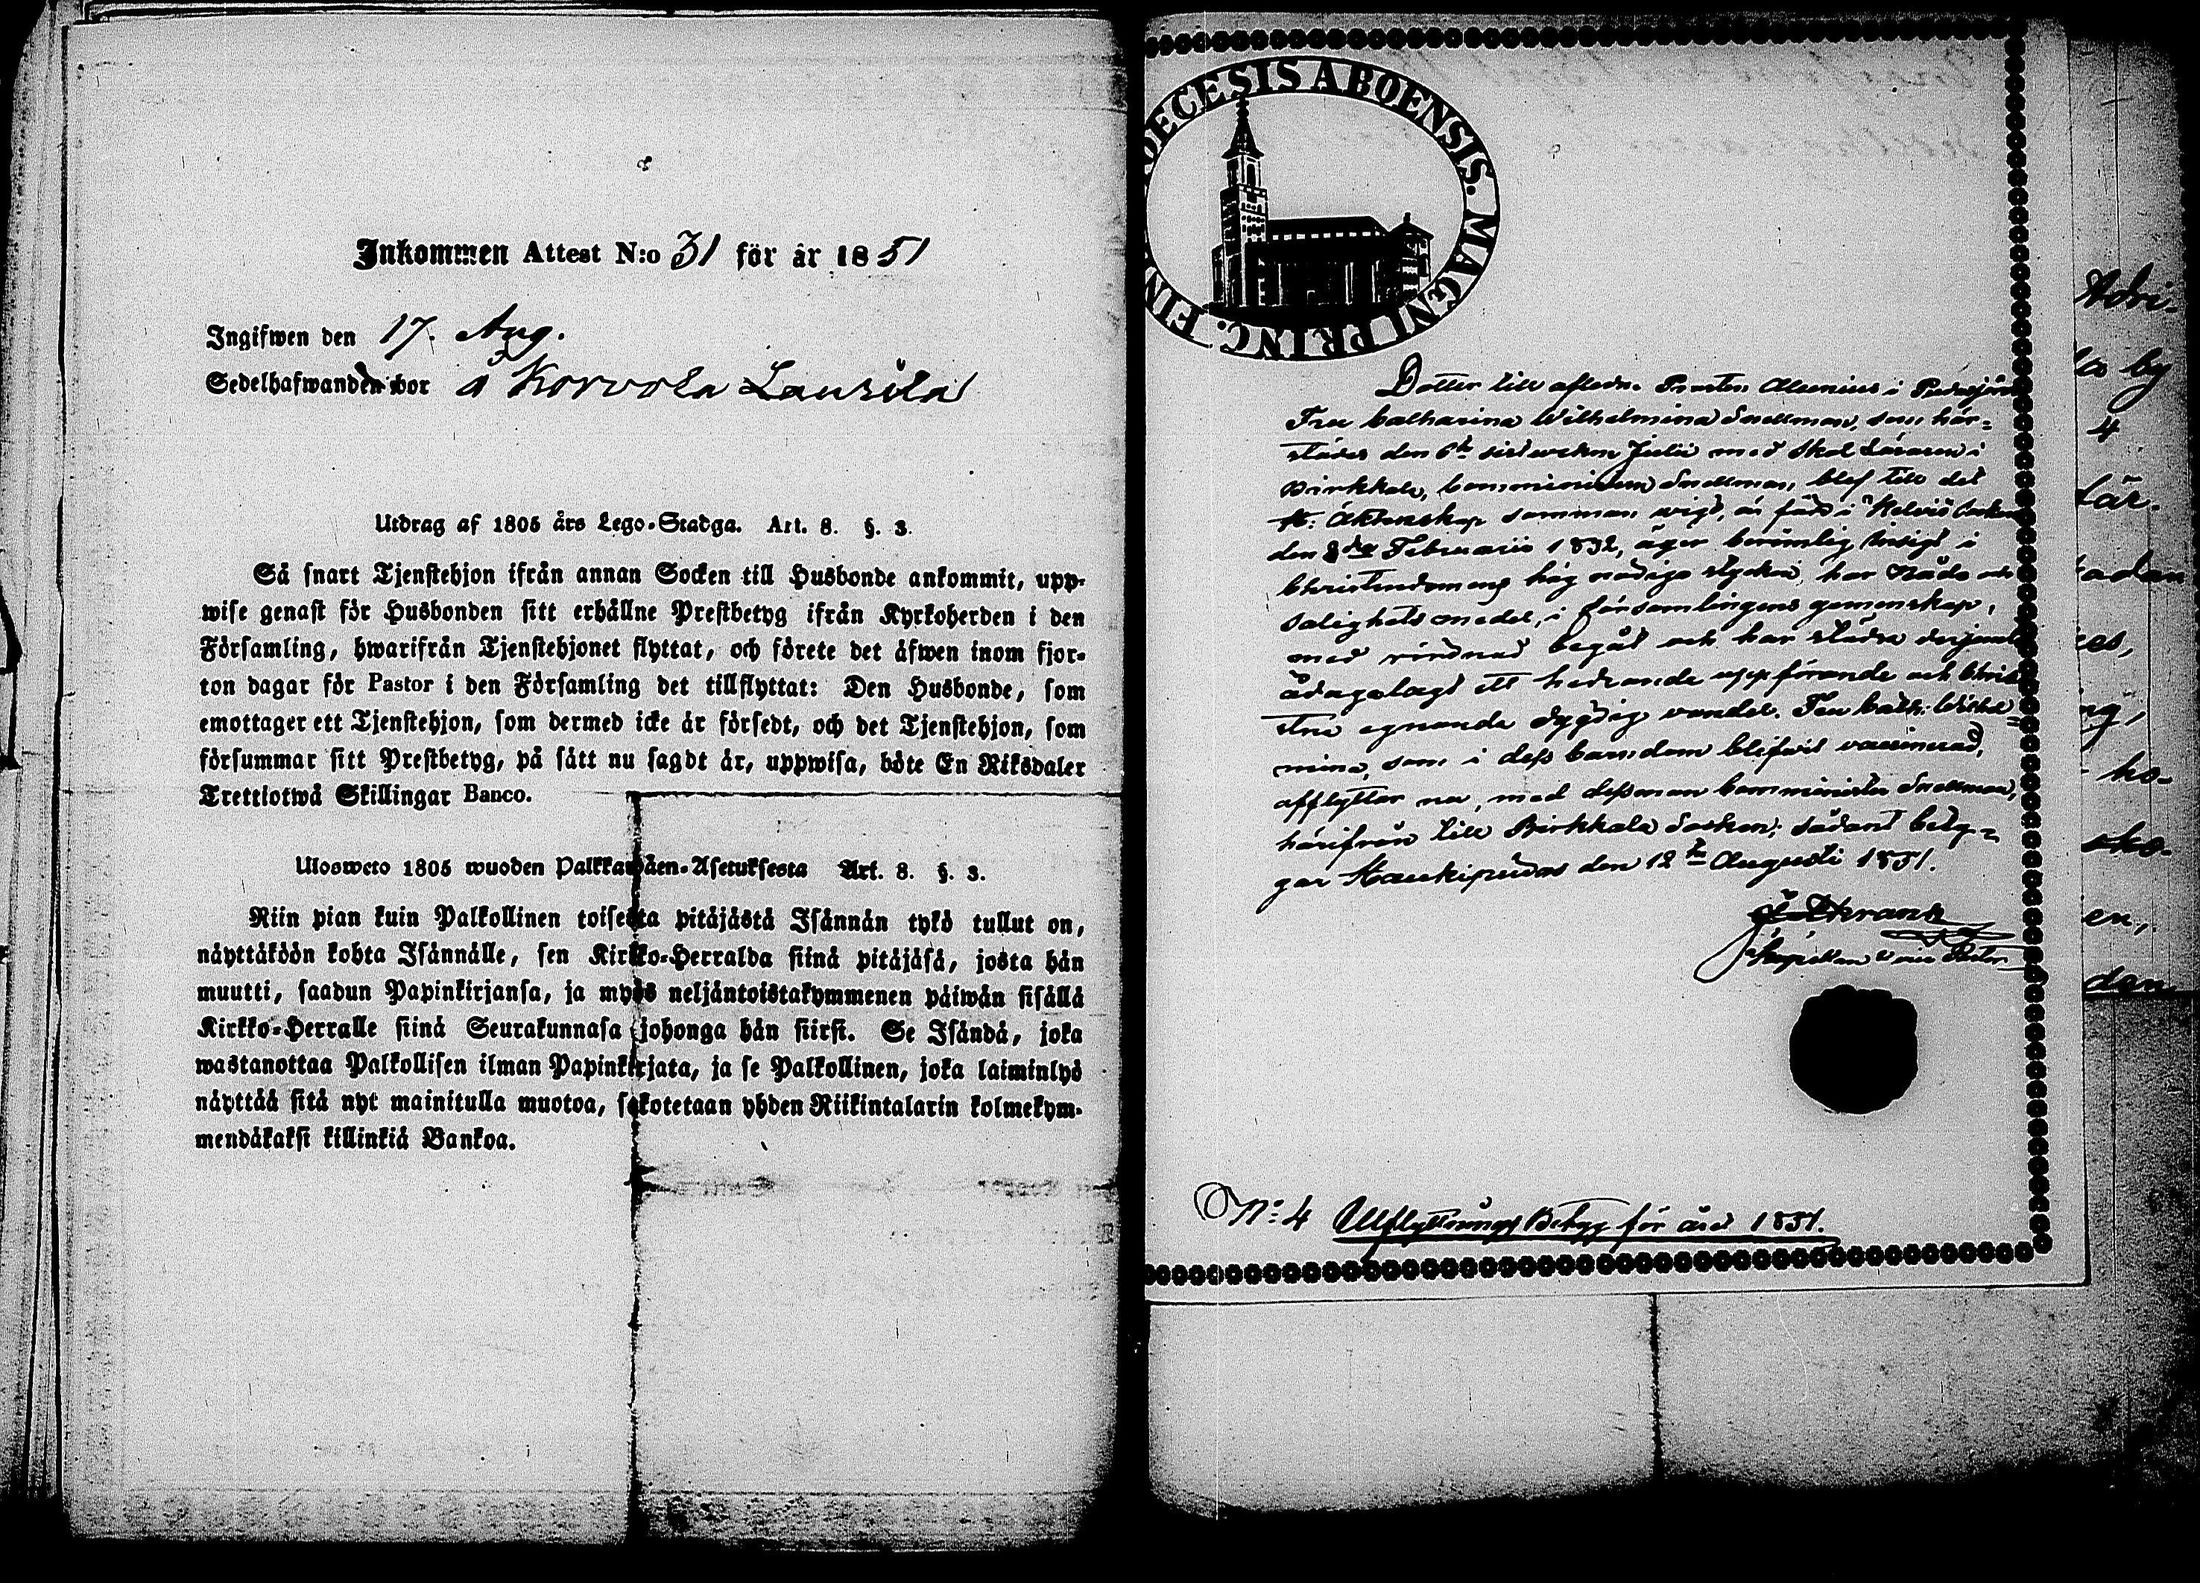 Inkommen Attest N:o 31 för år 1851
Ingifwen den 17. Aug.
Sedelhafwanden bor å Korvola Laurila
Utdrag af 1805 års Lego-Stadga. Art. 8. §. 3.
Så snart Tjenstehjon ifrån annan Socken till Husbonde ankommit, upp-
wise genast för Husbonden sitt erhållne Prestbetyg ifrån Kyrkoherden i den
Församling, hwarifrån Tjenstehjonet flyttat, och förete det äfwen inom fjor-
ton dagar för Pastor i den Församling det tillflyttat: Den Husbonde, som
emottager ett Tjenstehjon, som dermed icke är försedt, och det Tjenstehjon, som
försummar sitt Prestbetyg, på sätt nu sagdt är, uppwisa, böte En Riksdaler
Trettiotwå Skillingar Banco.
Ulosweto 1805 wuoden Palkkawäen-Asetuksesta Art. 8. §. 3.
Niin pian kuin Palkollinen toisesta pitäjästä Isännän tykö tullut on,
näyttäköön kohta Isännälle, sen Kirkko-Herralda siinä pitäjäsä, josta hän
muutti, saadun Papinkirjansa, ja myös neljäntoistakymmenen päiwän sisällä
Kirkko-Herralle siinä Seurakunnasa johonga hän siirsi. Se Isändä, joka
wastanottaa Palkollisen ilman Papinkirjata, ja se Palkollinen, joka laiminlyö
näyttää sitä nyt mainitulla muotoa, sakotetaan yhden Riikintalarin kolmekym-
mendäkaksi killinkiä Bankoa.
DECESIS ABOENSIS. MAGNI PRINC. FIN
Dotter till afledn. Prosten Alcenius i
Fru Catharina Wilhelmina Snellman, som här-
städes den 6te sistweken Julii med Skol Läraren i
Birkkala, Comministern Snellman, blef till det
H: Äktenskap samman wigd, är född i
den 8de Februarii 1832, äger berömlig insigt i
Christendomens hög nödiga stycken, har Nåde och
salighets medel, i församlingens gemenskap,
med wördnad begåt och har städse
ådagalagt ett hedrande uppförande och Chri
stne egnande dygdig vandel. Fru Cath: Wilhel=
mina, som i dess barndom blifwit vaccinerad,
afflyttar nu, med dess man Comminister Snellman,
härifrån till Birkkala Socken; sådant bety=
gar Haukipudas den 12te Augusti 1851.
Kapellan
No 4 Utflyttnings Betyg för året 1851.
Adri-
by
4
lär.
es,
ho-
sko-
en,
den